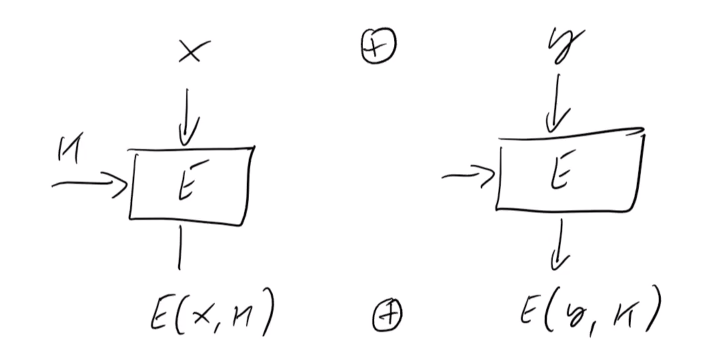 x ⊕ y
K
E E
E(x, K) ⊕ E(y, K)